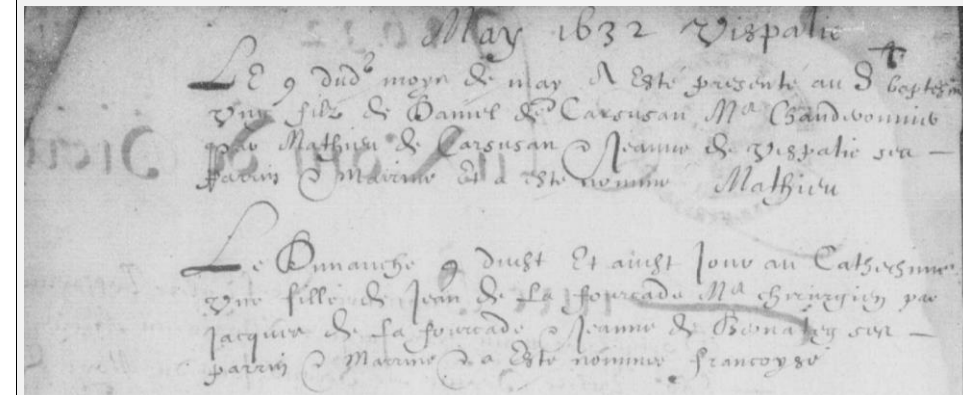 May 1632 Vispalie
Le 9 dud moys de may A Esté presenté au S baptesme
Vng filz de Daniel de Carsusan Mr
par Mathieu de Carsusan & Jeanne de Vispalie ses
parrin & Marrine Et a esté nommé Mathieu
Le Dimanche 9 dudit Et audit Jour au Cathechisme
Vne fille de Jean de La fourcade Mr chirurgien par
Jacques de La fourcade & Jeanne de ses
parrin & Marrine & a Esté nommée francoyse